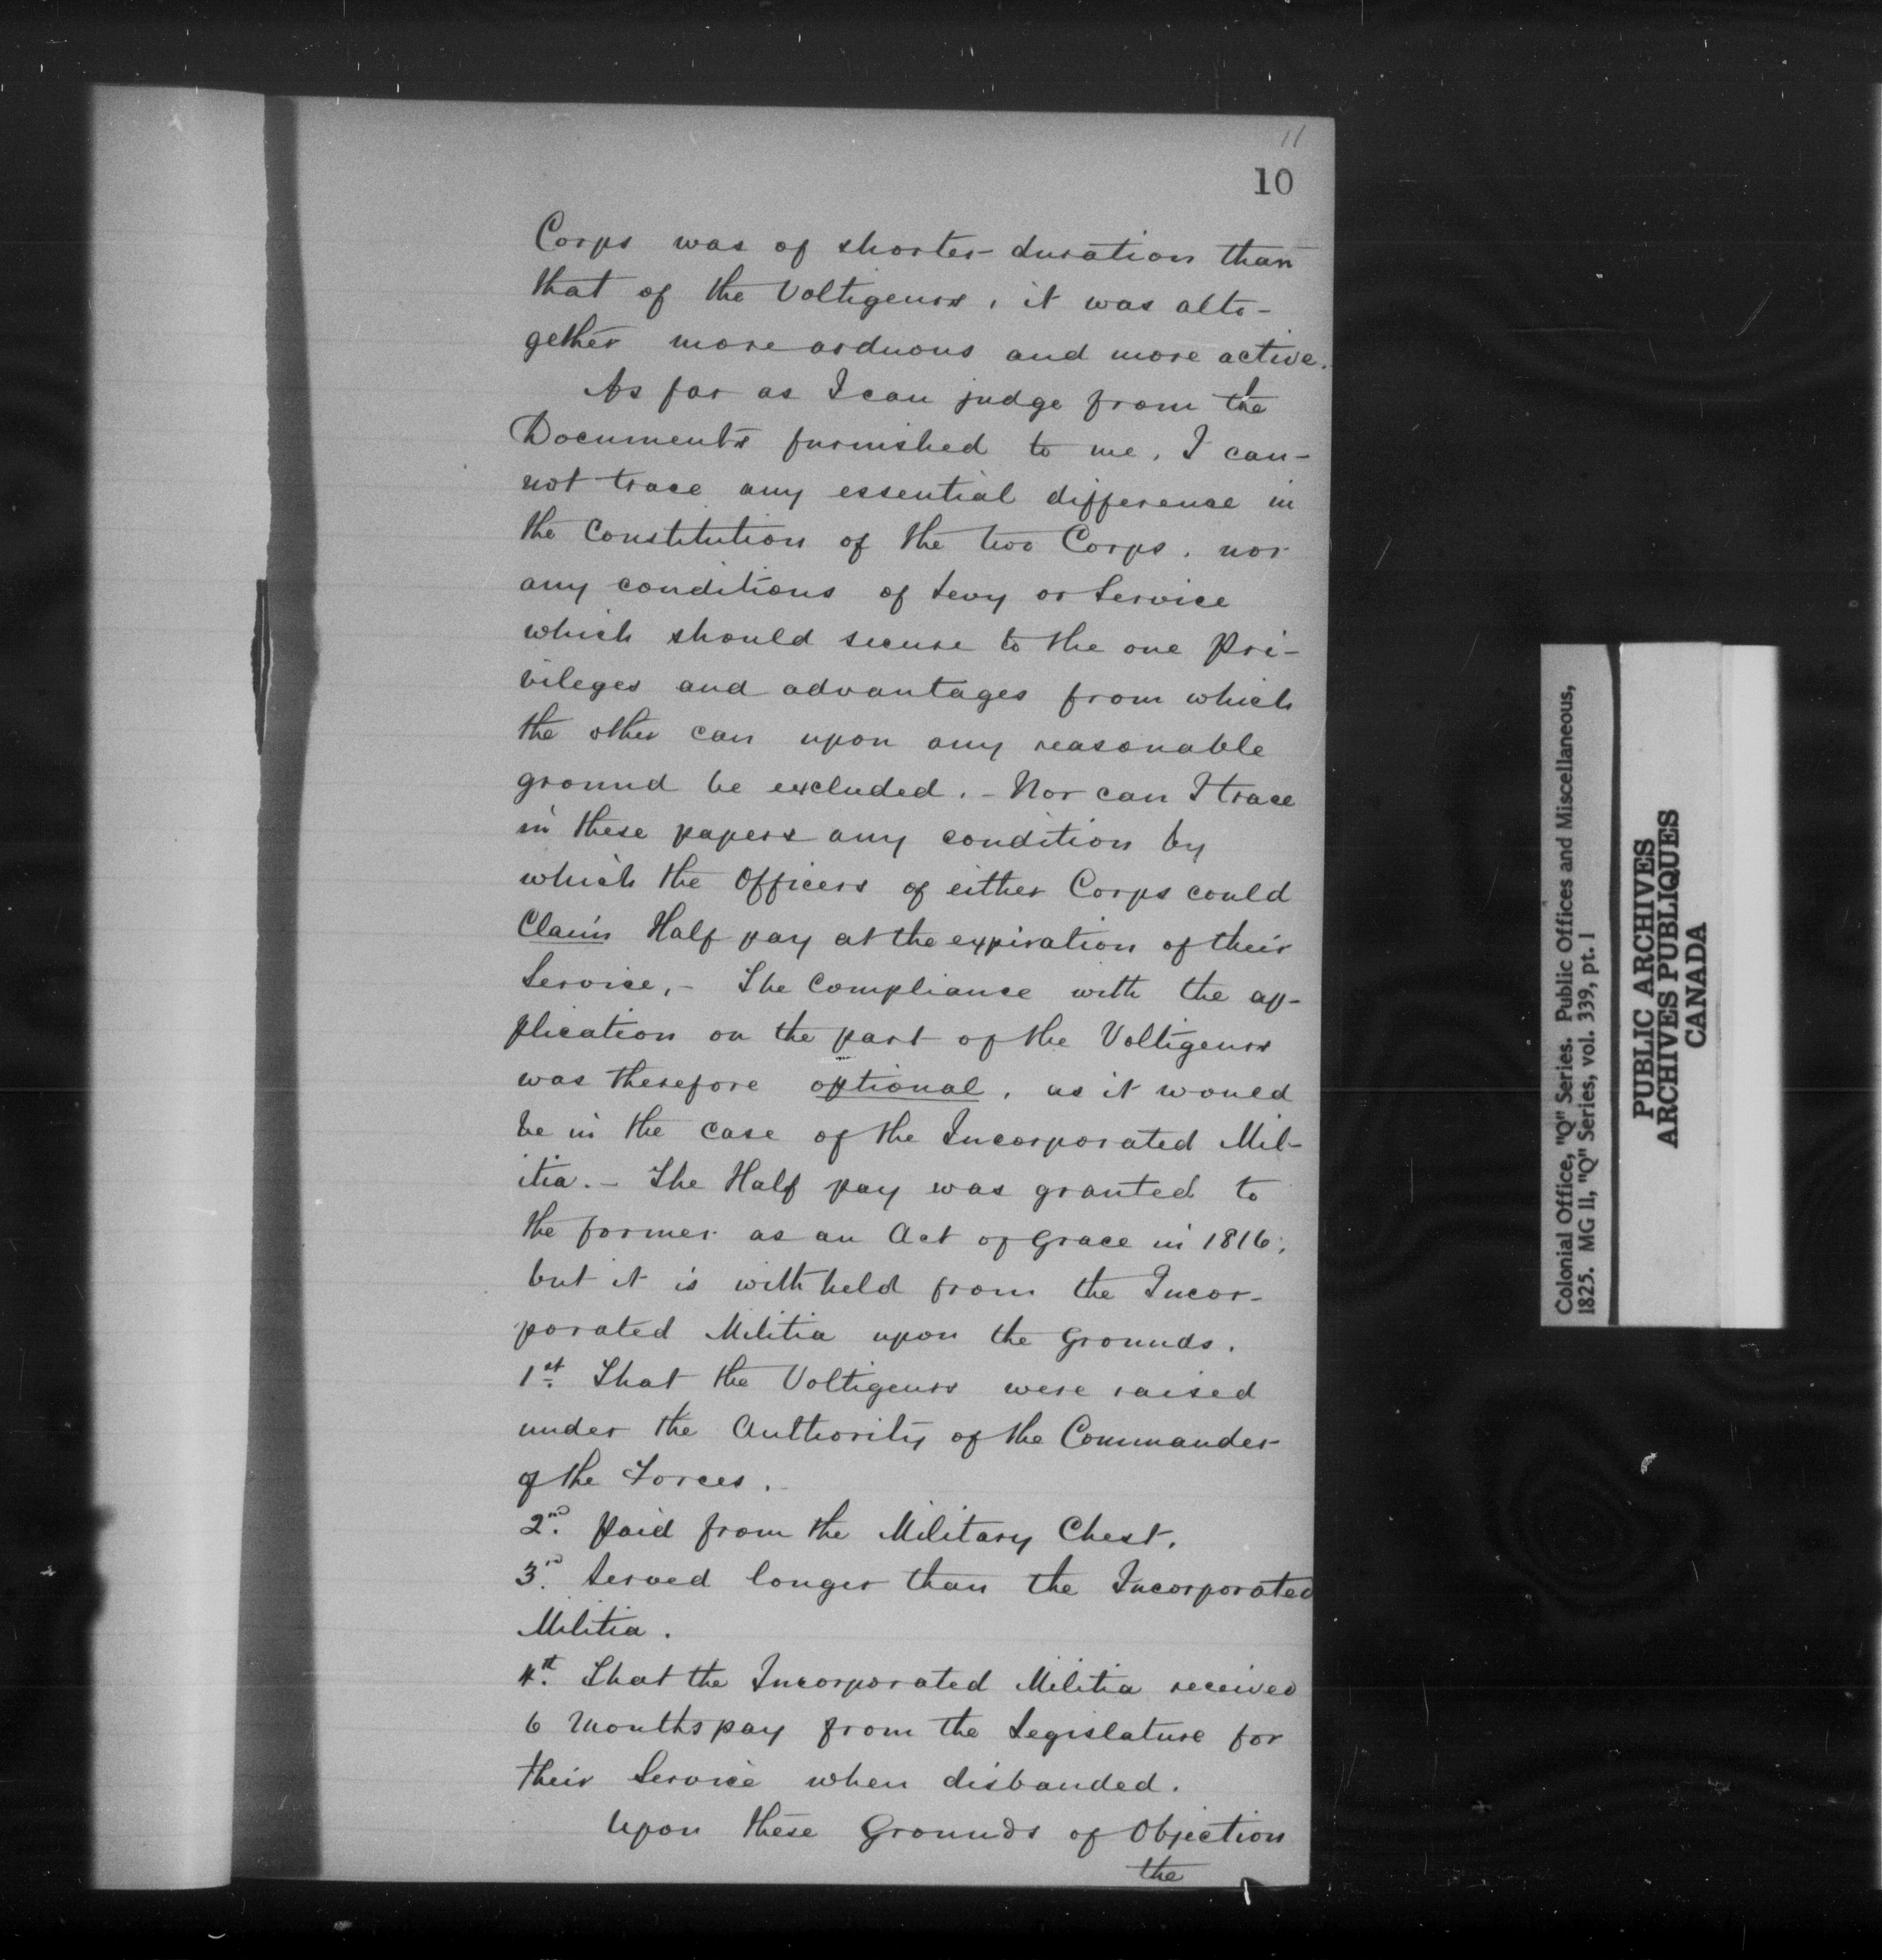 11
10
Corps was of shorter duration than
that of the Voltigeurs, it was alto-
gether more arduous and more active.
As far as I can judge from the
Documents furnished to me, I can-
not trace any essential difference in
the Constitution of the two Corps, nor
any conditions of Levy or Service
which should secure to the one Pri-
vileges and advantages from which
the other can upon any reasonable
ground be excluded. - Nor can I trace
in these papers any condition by
which the Officers of either Corps could
Claim Half pay at the expiration of their
Service, - The Compliance with the ap-
plication on the part of the Voltigeurs
was therefore optional, as it would
be in the case of the Incorporated Mil-
itia. - The Half pay was granted to
the former as an Act of Grace in 1816;
but it is withheld from the Incor-
porated Militia upon the Grounds.
1st. That the Voltigeurs were raised
under the Authority of the Commander
of the Forces.
2nd. paid from the Military Chest.
3rd. Served longer than the Incorporated
Militia.
4th. That the Incorporated Militia received
6 Months pay from the Legislature for
their Service when disbanded.
Upon these Grounds of Objection
the
Colonial Office, "Q" Series. Public Offices and Miscellaneous,
1825. MG 11, "Q" Series, vol. 339, pt. 1
PUBLIC ARCHIVES
ARCHIVES PUBLIQUES
CANADA